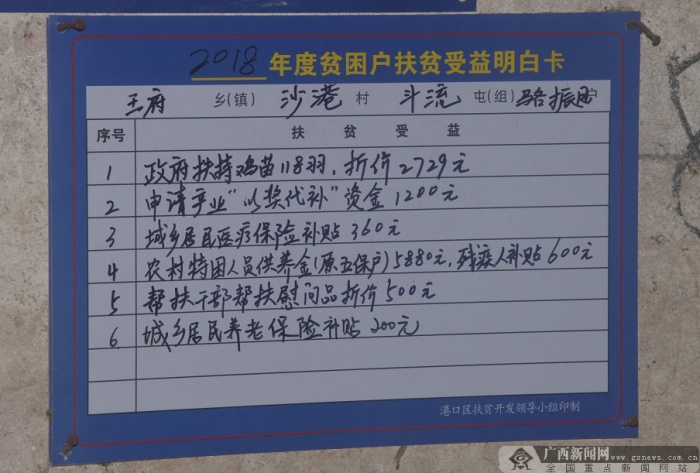 2018年度贫困户扶贫受益明白卡
王府 乡(镇) 沙港 村 斗流 屯(组) 骆振 户
序号 扶贫受益
1 政府扶持鸡苗118羽,折价2729元
2 申请产业"以奖代补"资金1200元
3 城乡居民医疗保险补贴360元
4 农村特困人员供养金(原五保户)5880元,残疾人补贴600元
5 帮扶干部帮扶慰问品折价500元
6 城乡居民养老保险补贴200元
港口区扶贫开发领导小组印制
广西新闻网
www.gxnews.com.cn
全国重点新闻网站